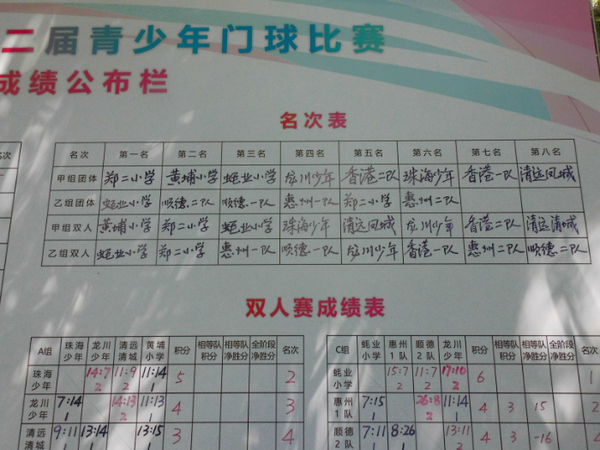 二届青少年门球比赛
成绩公布栏
名次表
名次 第一名 第二名 第三名 第四名 第五名 第六名 第七名 第八名
甲组团体 郑二小学 黄埔小学 蚝业小学 龙川少年 香港二队 珠海少年 香港一队 清远凤城
乙组团体 蚝业小学 顺德二队 顺德一队 惠州一队 郑二小学 惠州二队
甲组双人 黄埔小学 蚝业小学 郑二小学 珠海少年 清远凤城 龙川少年 香港二队 清远清城
乙组双人 蚝业小学 郑二小学 惠州一队 顺德一队 龙川少年 香港一队 惠州二队 顺德二队
双人赛成绩表
A组 珠海少年 龙川少年 清远清城 黄埔小学 积分 相等队积分 相等队净胜分 全阶段净胜分 名次 C组 蚝业小学 惠州1队 顺德2队 龙川少年 积分 相等队积分 相等队净胜分 全阶段净胜分 名次
珠海少年 14:7 2 11:9 2 11:14 1 5 2 蚝业小学 15:7 2 11:7 2 17:10 2 6 1
龙川少年 7:14 1 14:13 2 11:13 1 4 3 惠州1队 7:15 1 26:8 2 11:14 1 4 3 15 2
清远清城 9:11 1 13:14 1 13:15 1 3 4 顺德2队 7:11 1 8:26 1 13:11 2 4 3 -16 4